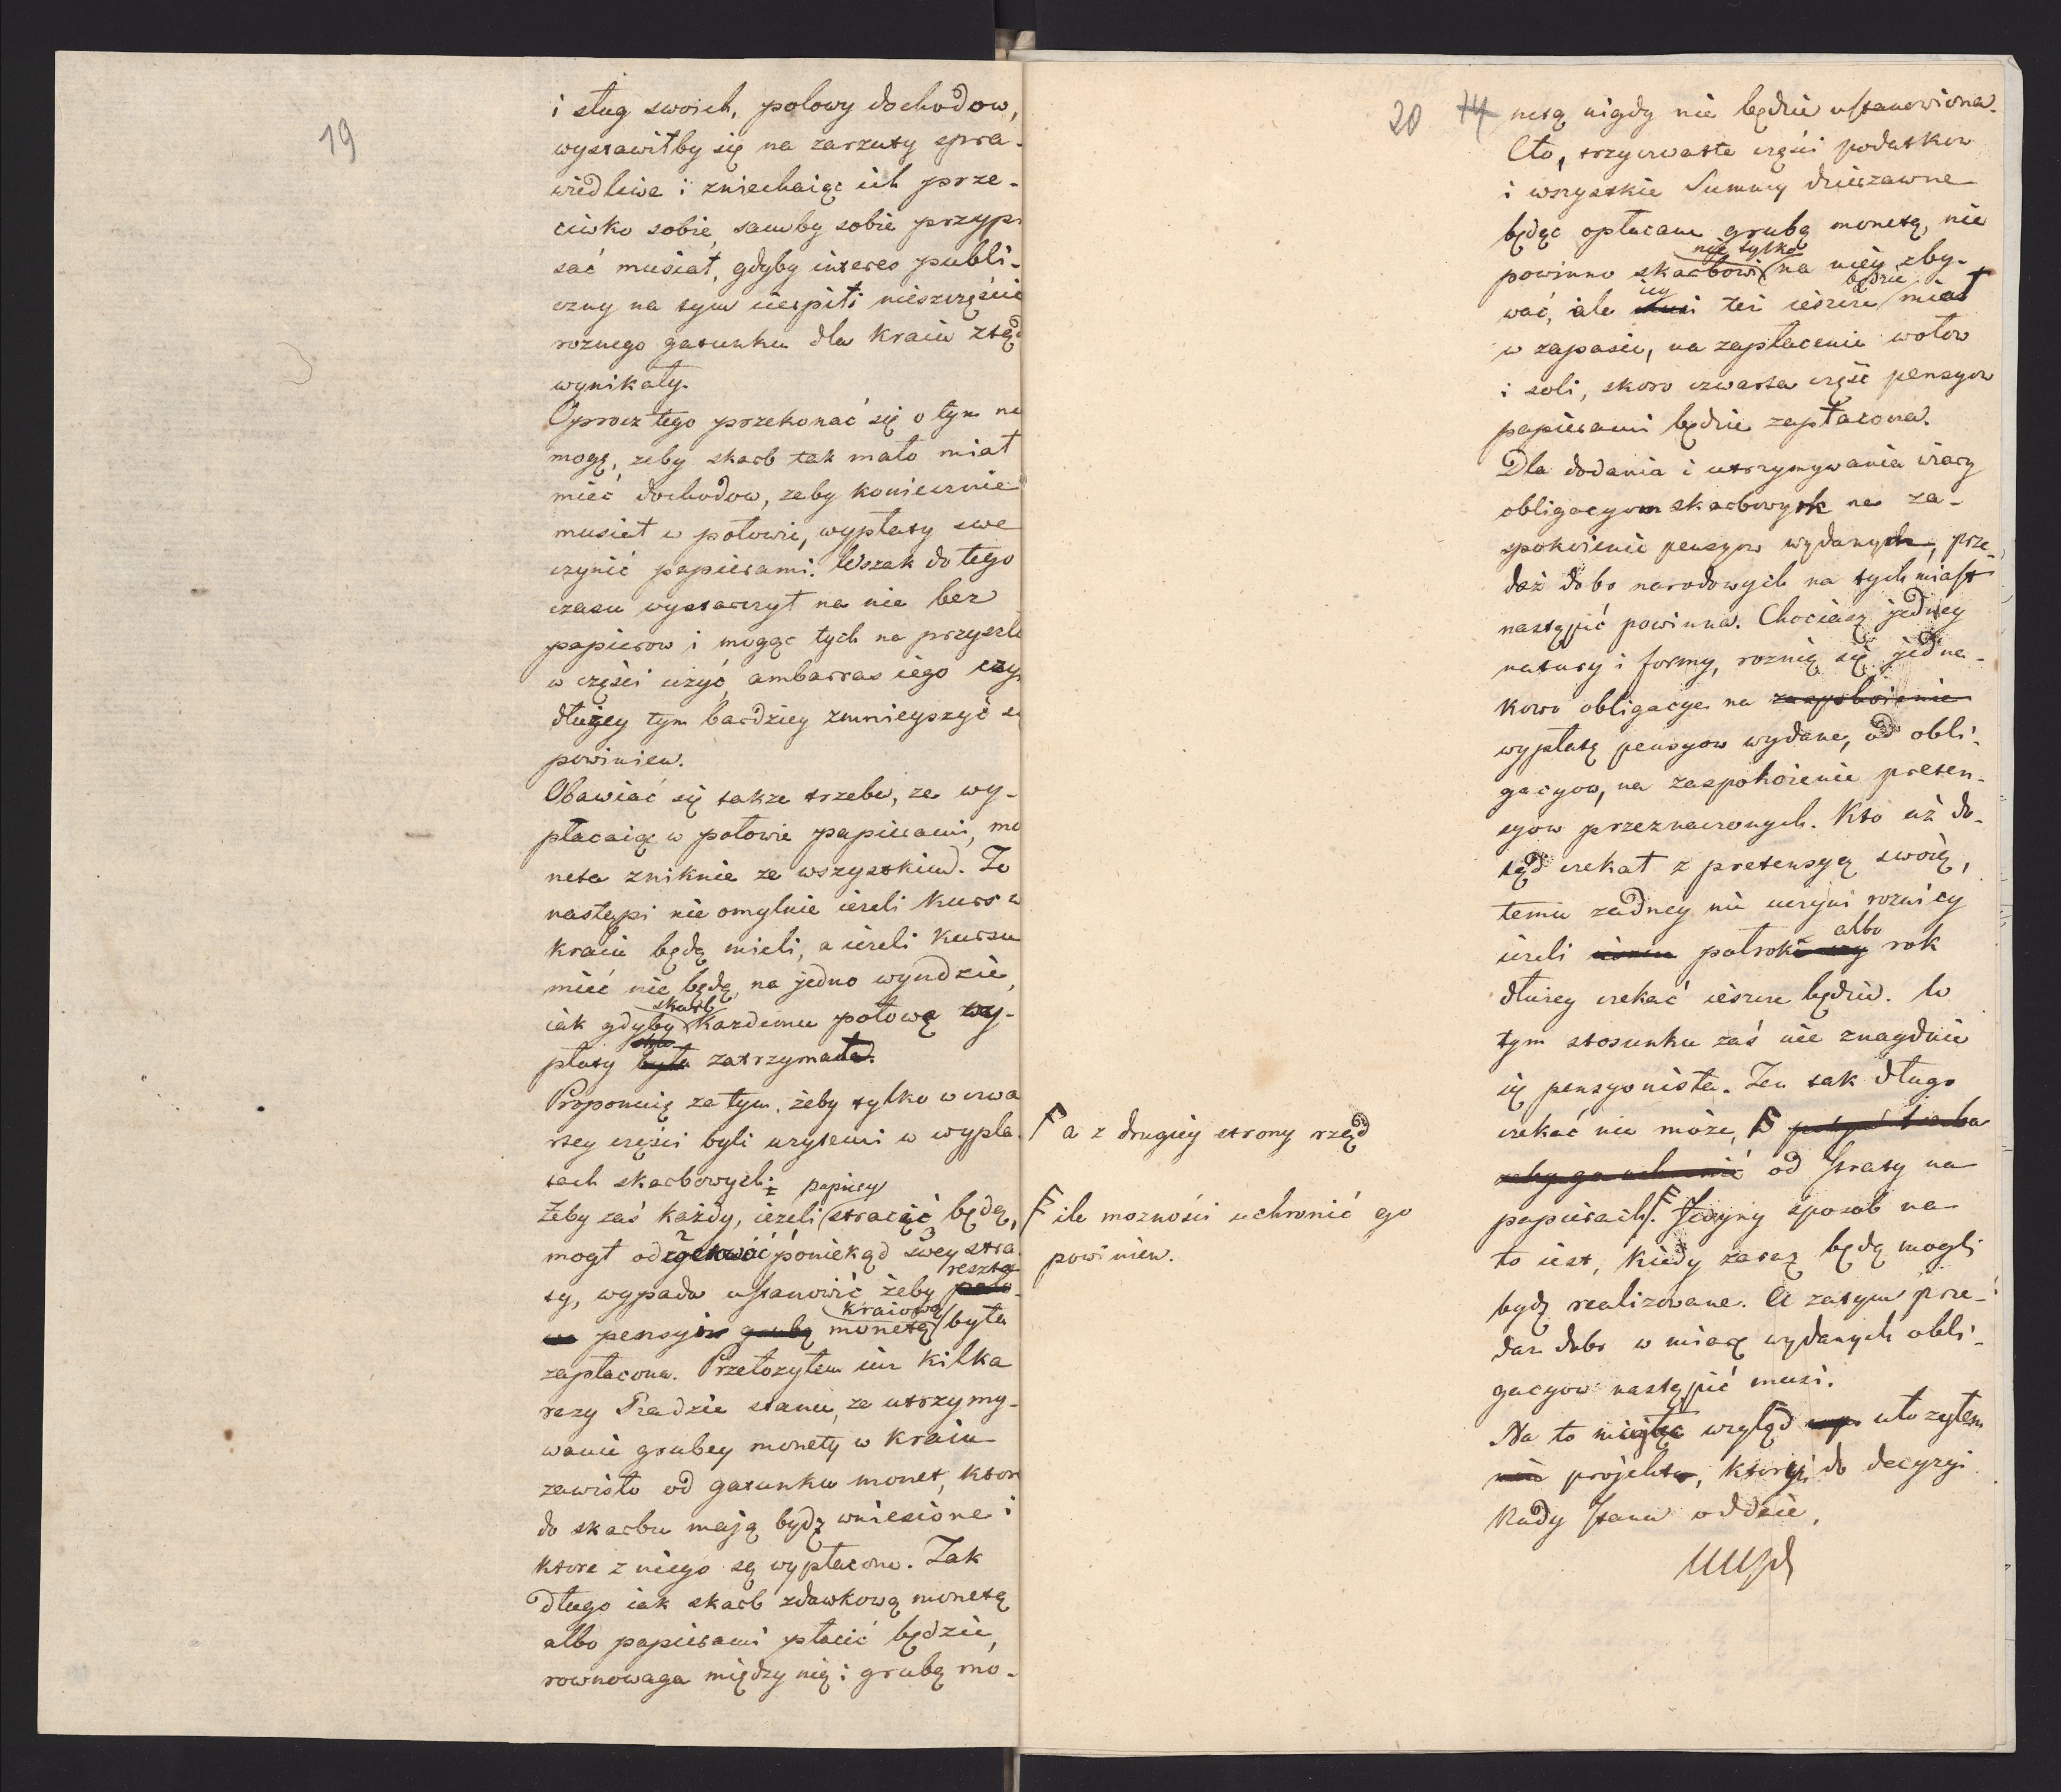 19
i sług swoich, połowy dochodow,
wystawiłby się na zarzuty spra-
wiedliwe i zniechaiąc ich prze-
ciwko sobie, samby sobie przypi
sać musiał, gdyby interes publi-
czny na tym ucierpiał i nieszczęścia
roznego gatunku dla kraiu ztąd
wynikały.
Oprocz tego przekonać się o tym nie
mogę, zeby skarb tak mało miał
mieć dochodow, zeby koniecznie
musiał w połowie, wypłaty swe
czynić papierami. Wszak do tego
czasu wystarczył na nie bez
papierow i mogąc tych na przyszło
w części użyć, ambarras iego czym
dłużey tym bardziey zmnieyszyć się
powinien.
Obawiać się takze trzeba, ze wy-
płacaiąc w połowie papierami, mo
neta zniknie ze wszystkim. To
nastąpi nie omylnie iezeli kurs w
kraiu będą mieli, a iezeli kursu
mieć nie będą, na jedno wyndzie,
skarb
iak gdyby kazdemu połowę wy-
płaty była zatrzymał.
Proponuię za tym, żeby tylko w czwa
rtey części byli uzytemi w wypła
tach skarbowych.
papiery
Zeby zaś każdy, iezeli stracić będą,
mogł od poniekąd swey stra
reszta
ty, wypada ustanowić żeby poło-
wa pensyiow grubą monetą była
kraiową
zapłacona. Przełozyłem iuz kilka
razy Radzie stanu, ze utrzymy-
wanie grubey monety w kraiu
zawisło od gatunku monet, ktore
do skarbu mają bydź wniesione i
ktore z niego są wypłacone. Jak
długo iak skarb zdawkową monetą
albo papierami płacić będzie,
rownowaga między nią i grubą mo-
20
14
netą nigdy nie będzie ustanowiona.
Oto, trzy czwarte części podatkow
i wszystkie Summy dzierzawne
będąc opłacane grubą monetą, nie
nie tylko
powinno skarbowi na niey zby-
iey
będzie
wać, ale też ieszcze miał
w zapasie, na zapłacenie wołow
i soli, skoro czwarta część pensyow
papierami będzie zapłacona.
Dla dodania i utrzymywania wiary
obligacyom skarbowych na za-
spokoienie pensyow wydanych, prze-
daż dobr narodowych na tychmiast
nastąpić powinna. Chociasz jedney
natury i formy, roznią się jedna-
kowo obligacye na zaspokoienie
wypłatę pensyow wydane, od obli-
gacyow, na zaspokoienie preten-
syow przeznaczonych. Kto aż do-
tąd czekał z pretensyą swoią,
temu zadney nie uczyni roznicy
albo
iezeli połroku czy rok
dłużey czekać ieszcze będzie. W
tym stosunku zaś nie znayduie
ię pensyonista. Ten tak długo
czekać nie może, F
od straty na
papierach. F Jedyny sposob na
to iest, kiedy zaraz będą mogli
bydź realizowane. A zatym prze-
daz dobr w miarę wydanych obli-
gacyow nastąpić musi.
Na to maiąc wzgląd ułozyłem
projekta, ktory do decyzyi
Rady Stanu oddaie,
F a z drugiey strony rząd
F ile mozności uchronić go
powinien.